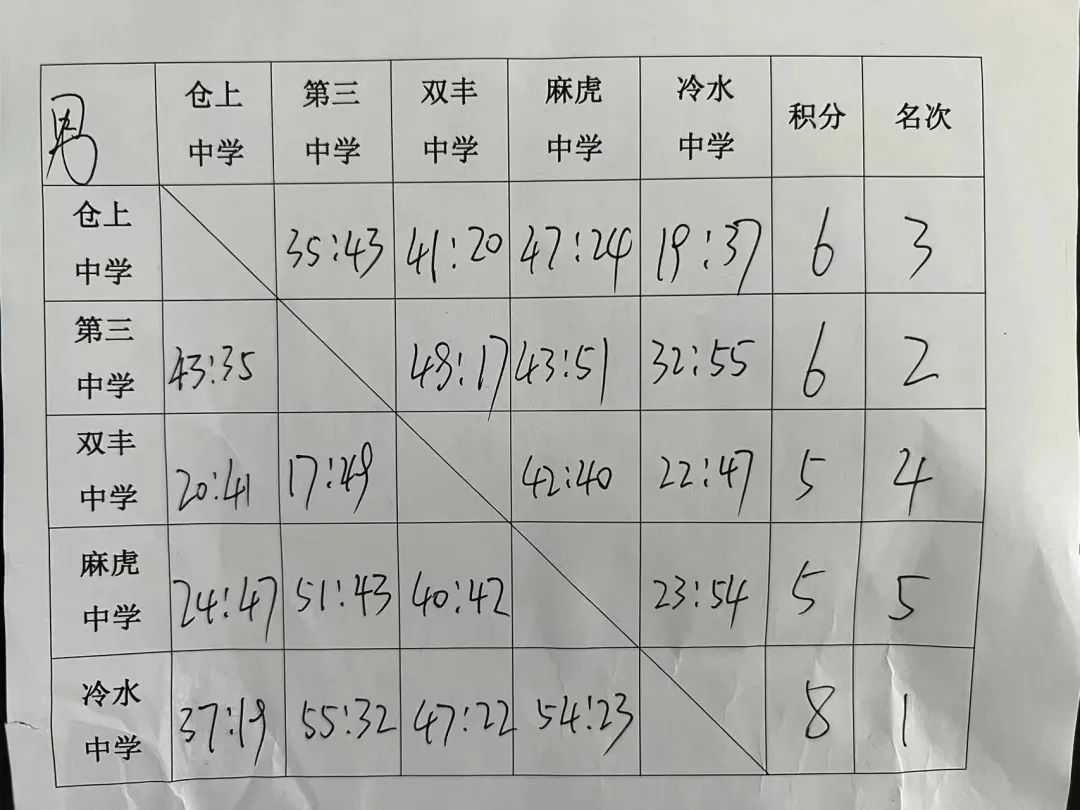 男 仓上 第三 双丰 麻虎 冷水 积分 名次
中学 中学 中学 中学 中学
仓上
中学 35:43 41:20 47:24 19:37 6 3
第三
中学 43:35 48:17 43:51 32:55 6 2
双丰
中学 20:41 17:49 42:40 22:47 5 4
麻虎
中学 24:47 51:43 40:42 23:54 5 5
冷水
中学 37:19 55:32 47:22 54:23 8 1